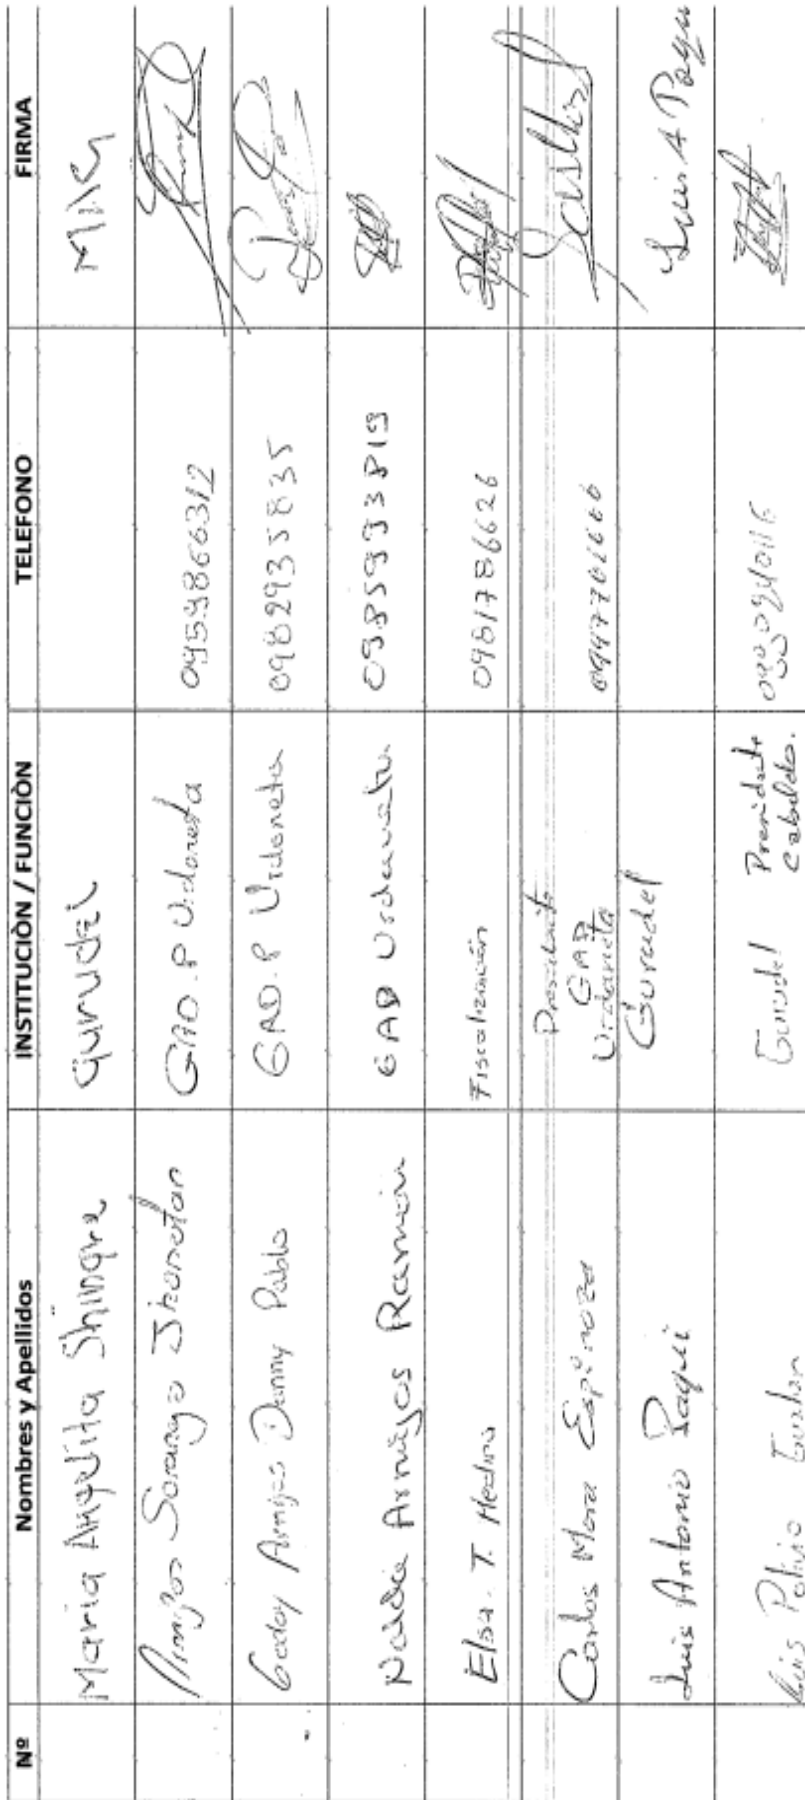 Nº Nombres y Apellidos INSTITUCIÒN / FUNCIÒN TELEFONO FIRMA
Maria Angelita Shingre Gurudel
Armijos Sarango Jhonatan GAD.P Urdaneta 0959866312
Godoy Armijos Danny Pablo GAD.P Urdaneta 0982935835
Armijos Ramón GAD Urdaneta 0985993819
Elsa. T. Medina Fiscalización 0981786626
Carlos Mora Espinoza Presidente GAD Urdaneta
Luis Antonio Paqui Gurudel Luis A Paqui
Luis Polivio Gurudel Presidente Cabildo.